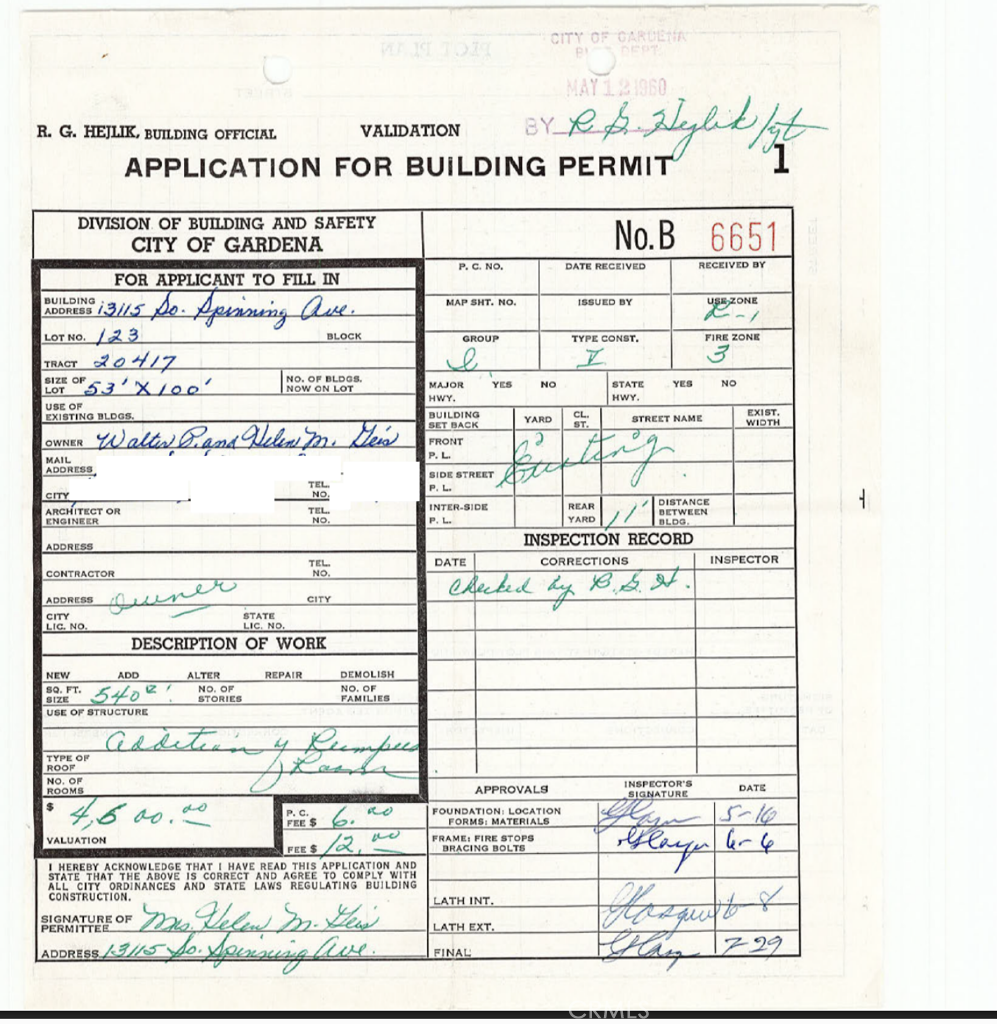 CITY OF GARDENA
BLDG. DEPT.
MAY 12 1960
R. G. HEJLIK, BUILDING OFFICIAL VALIDATION BY R. G. Hejlik/gt
APPLICATION FOR BUILDING PERMIT 1
DIVISION OF BUILDING AND SAFETY
CITY OF GARDENA
No. B 6651
FOR APPLICANT TO FILL IN
BUILDING ADDRESS 13115 So. Spinning Ave.
LOT NO. 123 BLOCK
TRACT 20417
SIZE OF LOT 53' X 100' NO. OF BLDGS. NOW ON LOT
USE OF EXISTING BLDGS.
OWNER Walter P. and Helen M. Geis
MAIL ADDRESS
CITY TEL. NO.
ARCHITECT OR ENGINEER TEL. NO.
ADDRESS
CONTRACTOR TEL. NO.
ADDRESS Owner CITY
CITY LIC. NO. STATE LIC. NO.
DESCRIPTION OF WORK
NEW ADD ALTER REPAIR DEMOLISH
SQ. FT. SIZE 540 NO. OF STORIES NO. OF FAMILIES
USE OF STRUCTURE
Addition of Rumpus
TYPE OF ROOF Room
NO. OF ROOMS
$ 4,600.00 P. C. FEE $ 6.00
VALUATION FEE $ 12.00
I HEREBY ACKNOWLEDGE THAT I HAVE READ THIS APPLICATION AND
STATE THAT THE ABOVE IS CORRECT AND AGREE TO COMPLY WITH
ALL CITY ORDINANCES AND STATE LAWS REGULATING BUILDING
CONSTRUCTION.
SIGNATURE OF PERMITTEE Mrs. Helen M. Geis
ADDRESS 13115 So. Spinning Ave.
P. C. NO. DATE RECEIVED RECEIVED BY
MAP SHT. NO. ISSUED BY USE ZONE
R-1
GROUP TYPE CONST. FIRE ZONE
V 3
MAJOR HWY. YES NO STATE HWY. YES NO
BUILDING SET BACK YARD CL. ST. STREET NAME EXIST. WIDTH
FRONT P. L. Existing
SIDE STREET P. L.
INTER-SIDE P. L. REAR YARD 11' DISTANCE BETWEEN BLDG.
INSPECTION RECORD
DATE CORRECTIONS INSPECTOR
Checked by R. G. H.
APPROVALS INSPECTOR'S SIGNATURE DATE
FOUNDATION: LOCATION FORMS: MATERIALS 5-16
FRAME: FIRE STOPS BRACING BOLTS 6-6
LATH INT. Glasgow 6-8
LATH EXT.
FINAL 7-29
CRMLS